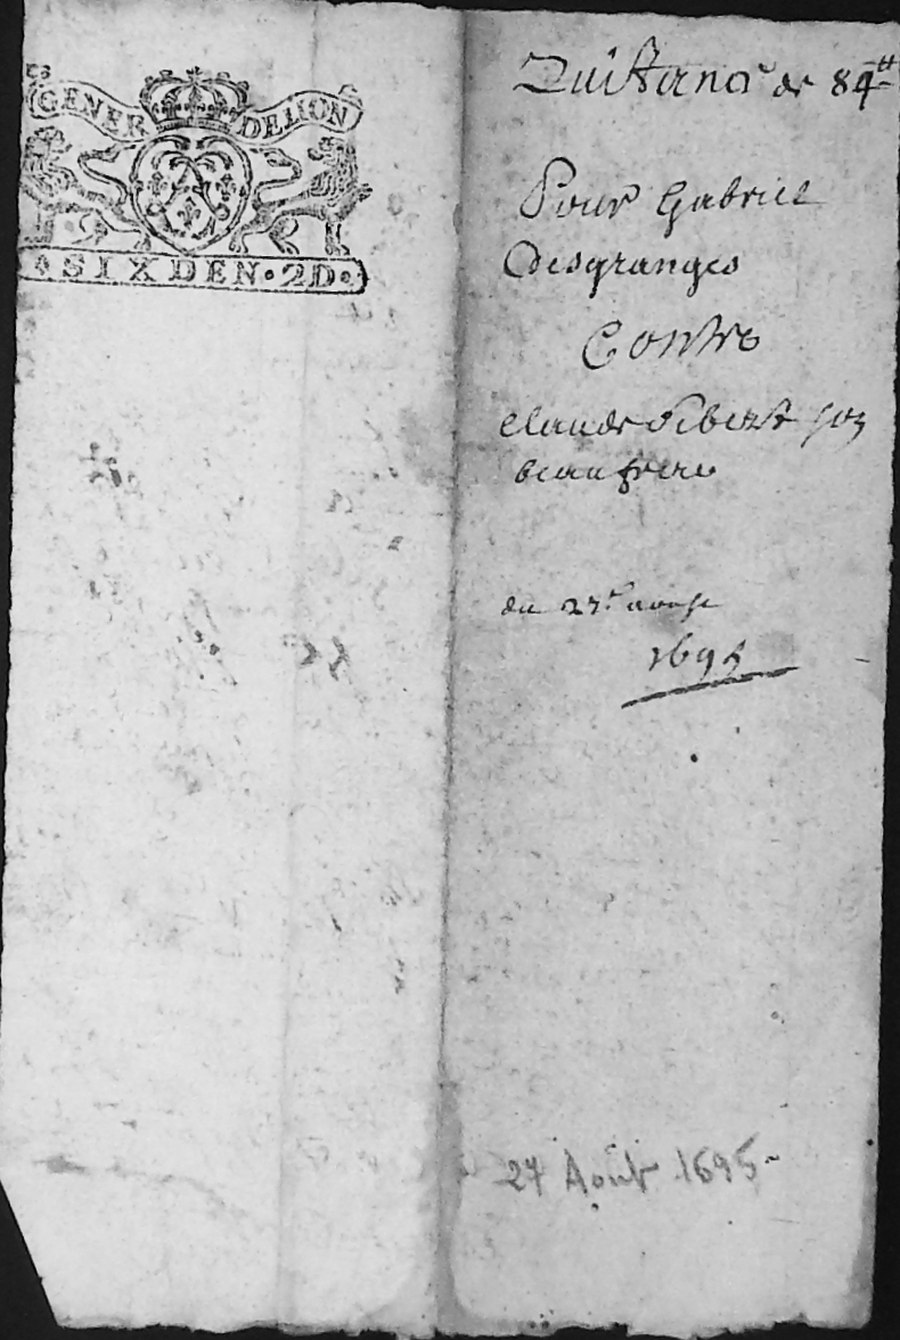 GENER DELION
SIX DEN · 2D ·
Quittance de 84 ₶
Pour Gabriel
Desgranges
Contre
Claude Gibert son
beau frere
du 27e aoust
1695
27 Août 1695